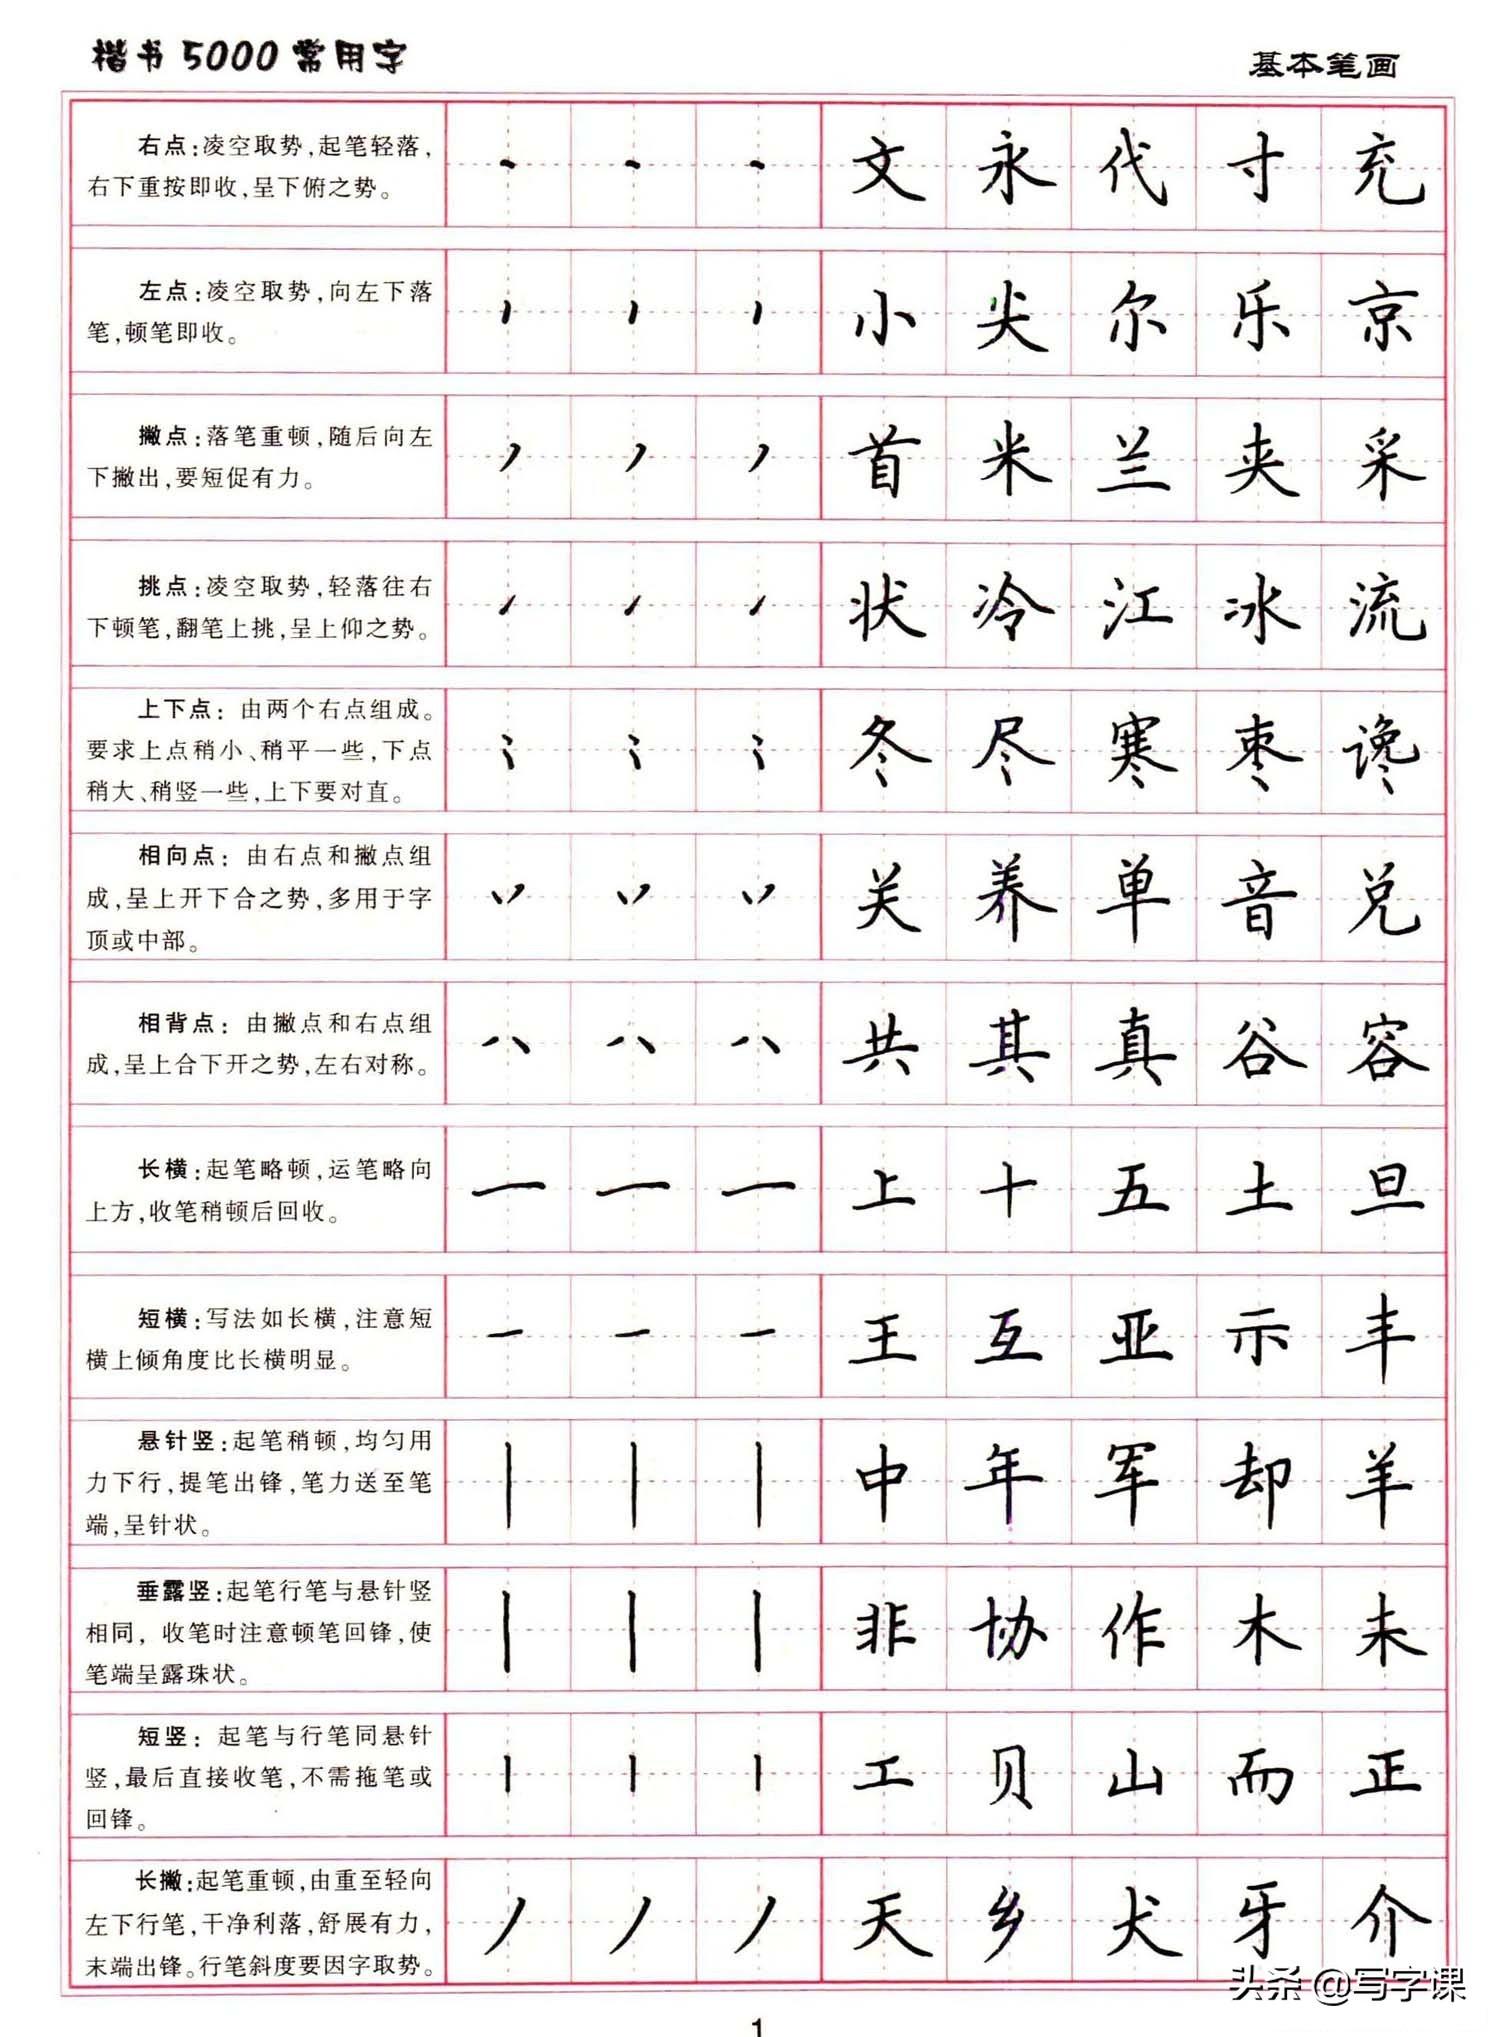 楷书5000常用字
基本笔画
右点:凌空取势,起笔轻落,
右下重按即收,呈下俯之势。
文 永 代 寸 充
左点:凌空取势,向左下落
笔,顿笔即收。
小 尖 尔 乐 京
撇点:落笔重顿,随后向左
下撇出,要短促有力。
首 米 兰 夹 采
挑点:凌空取势,轻落往右
下顿笔,翻笔上挑,呈上仰之势。
状 冷 江 冰 流
上下点:由两个右点组成。
要求上点稍小、稍平一些,下点
稍大、稍竖一些,上下要对直。
冬 尽 寒 枣 谗
相向点:由右点和撇点组
成,呈上开下合之势,多用于字
顶或中部。
关 养 单 音 兑
相背点:由撇点和右点组
成,呈上合下开之势,左右对称。
共 其 真 谷 容
长横:起笔略顿,运笔略向
上方,收笔稍顿后回收。
上 十 五 土 旦
短横:写法如长横,注意短
横上倾角度比长横明显。
王 互 亚 示 丰
悬针竖:起笔稍顿,均匀用
力下行,提笔出锋,笔力送至笔
端,呈针状。
中 年 军 却 羊
垂露竖:起笔行笔与悬针竖
相同,收笔时注意顿笔回锋,使
笔端呈露珠状。
非 协 作 木 未
短竖:起笔与行笔同悬针
竖,最后直接收笔,不需拖笔或
回锋。
工 贝 山 而 正
长撇:起笔重顿,由重至轻向
左下行笔,干净利落,舒展有力,
末端出锋。行笔斜度要因字取势。
天 乡 犬 牙 介
头条 @写字课
1